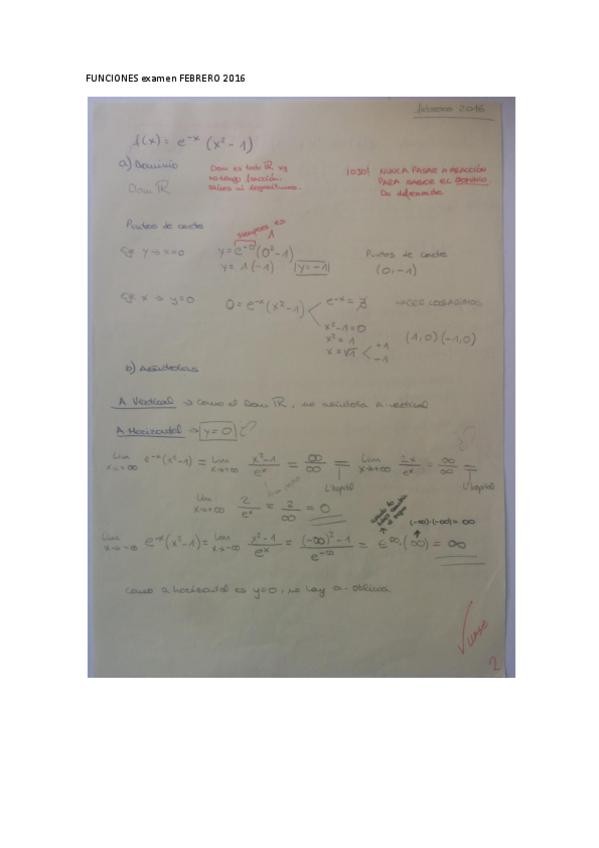 FUNCIONES examen FEBRERO 2016
febrero 2016
f(x) = e^-x (x²-1)
a) Dominio
Dom ℝ
Dom es todo ℝ xq
no tengo fracción,
raíces ni logaritmos.
¡OJO! NUNCA PASAR A FRACCIÓN
PARA SABER EL DOMINIO.
Puntos de corte
siempre es 1
Eje y → x=0 y = e^-0 (0²-1)
y = 1(-1) y = -1
Puntos de corte
(0,-1)
Eje x → y=0 0 = e^-x (x²-1) e^-x = ∄ HACER LOGARITMOS
x²-1=0
x² = 1
x = √1 +1 -1
(1,0) (-1,0)
b) Asíntotas
A Vertical → como el Dom ℝ, no asíntota a vertical
A Horizontal → y=0
Lim x→+∞ e^-x (x²-1) = Lim x→+∞ x²-1/e^x = ∞/∞ = Lim x→+∞ 2x/e^x = ∞/∞ =
L'hopital L'hopital
Lim x→+∞ 2/e^x = 2/∞ = 0
(-∞)·(-∞) = ∞
Lim x→-∞ e^-x (x²-1) = Lim x→-∞ x²-1/e^x = (-∞)²-1/e^-∞ = e^∞·(∞) = ∞
como a horizontal es y=0, no hay a. oblicua
2